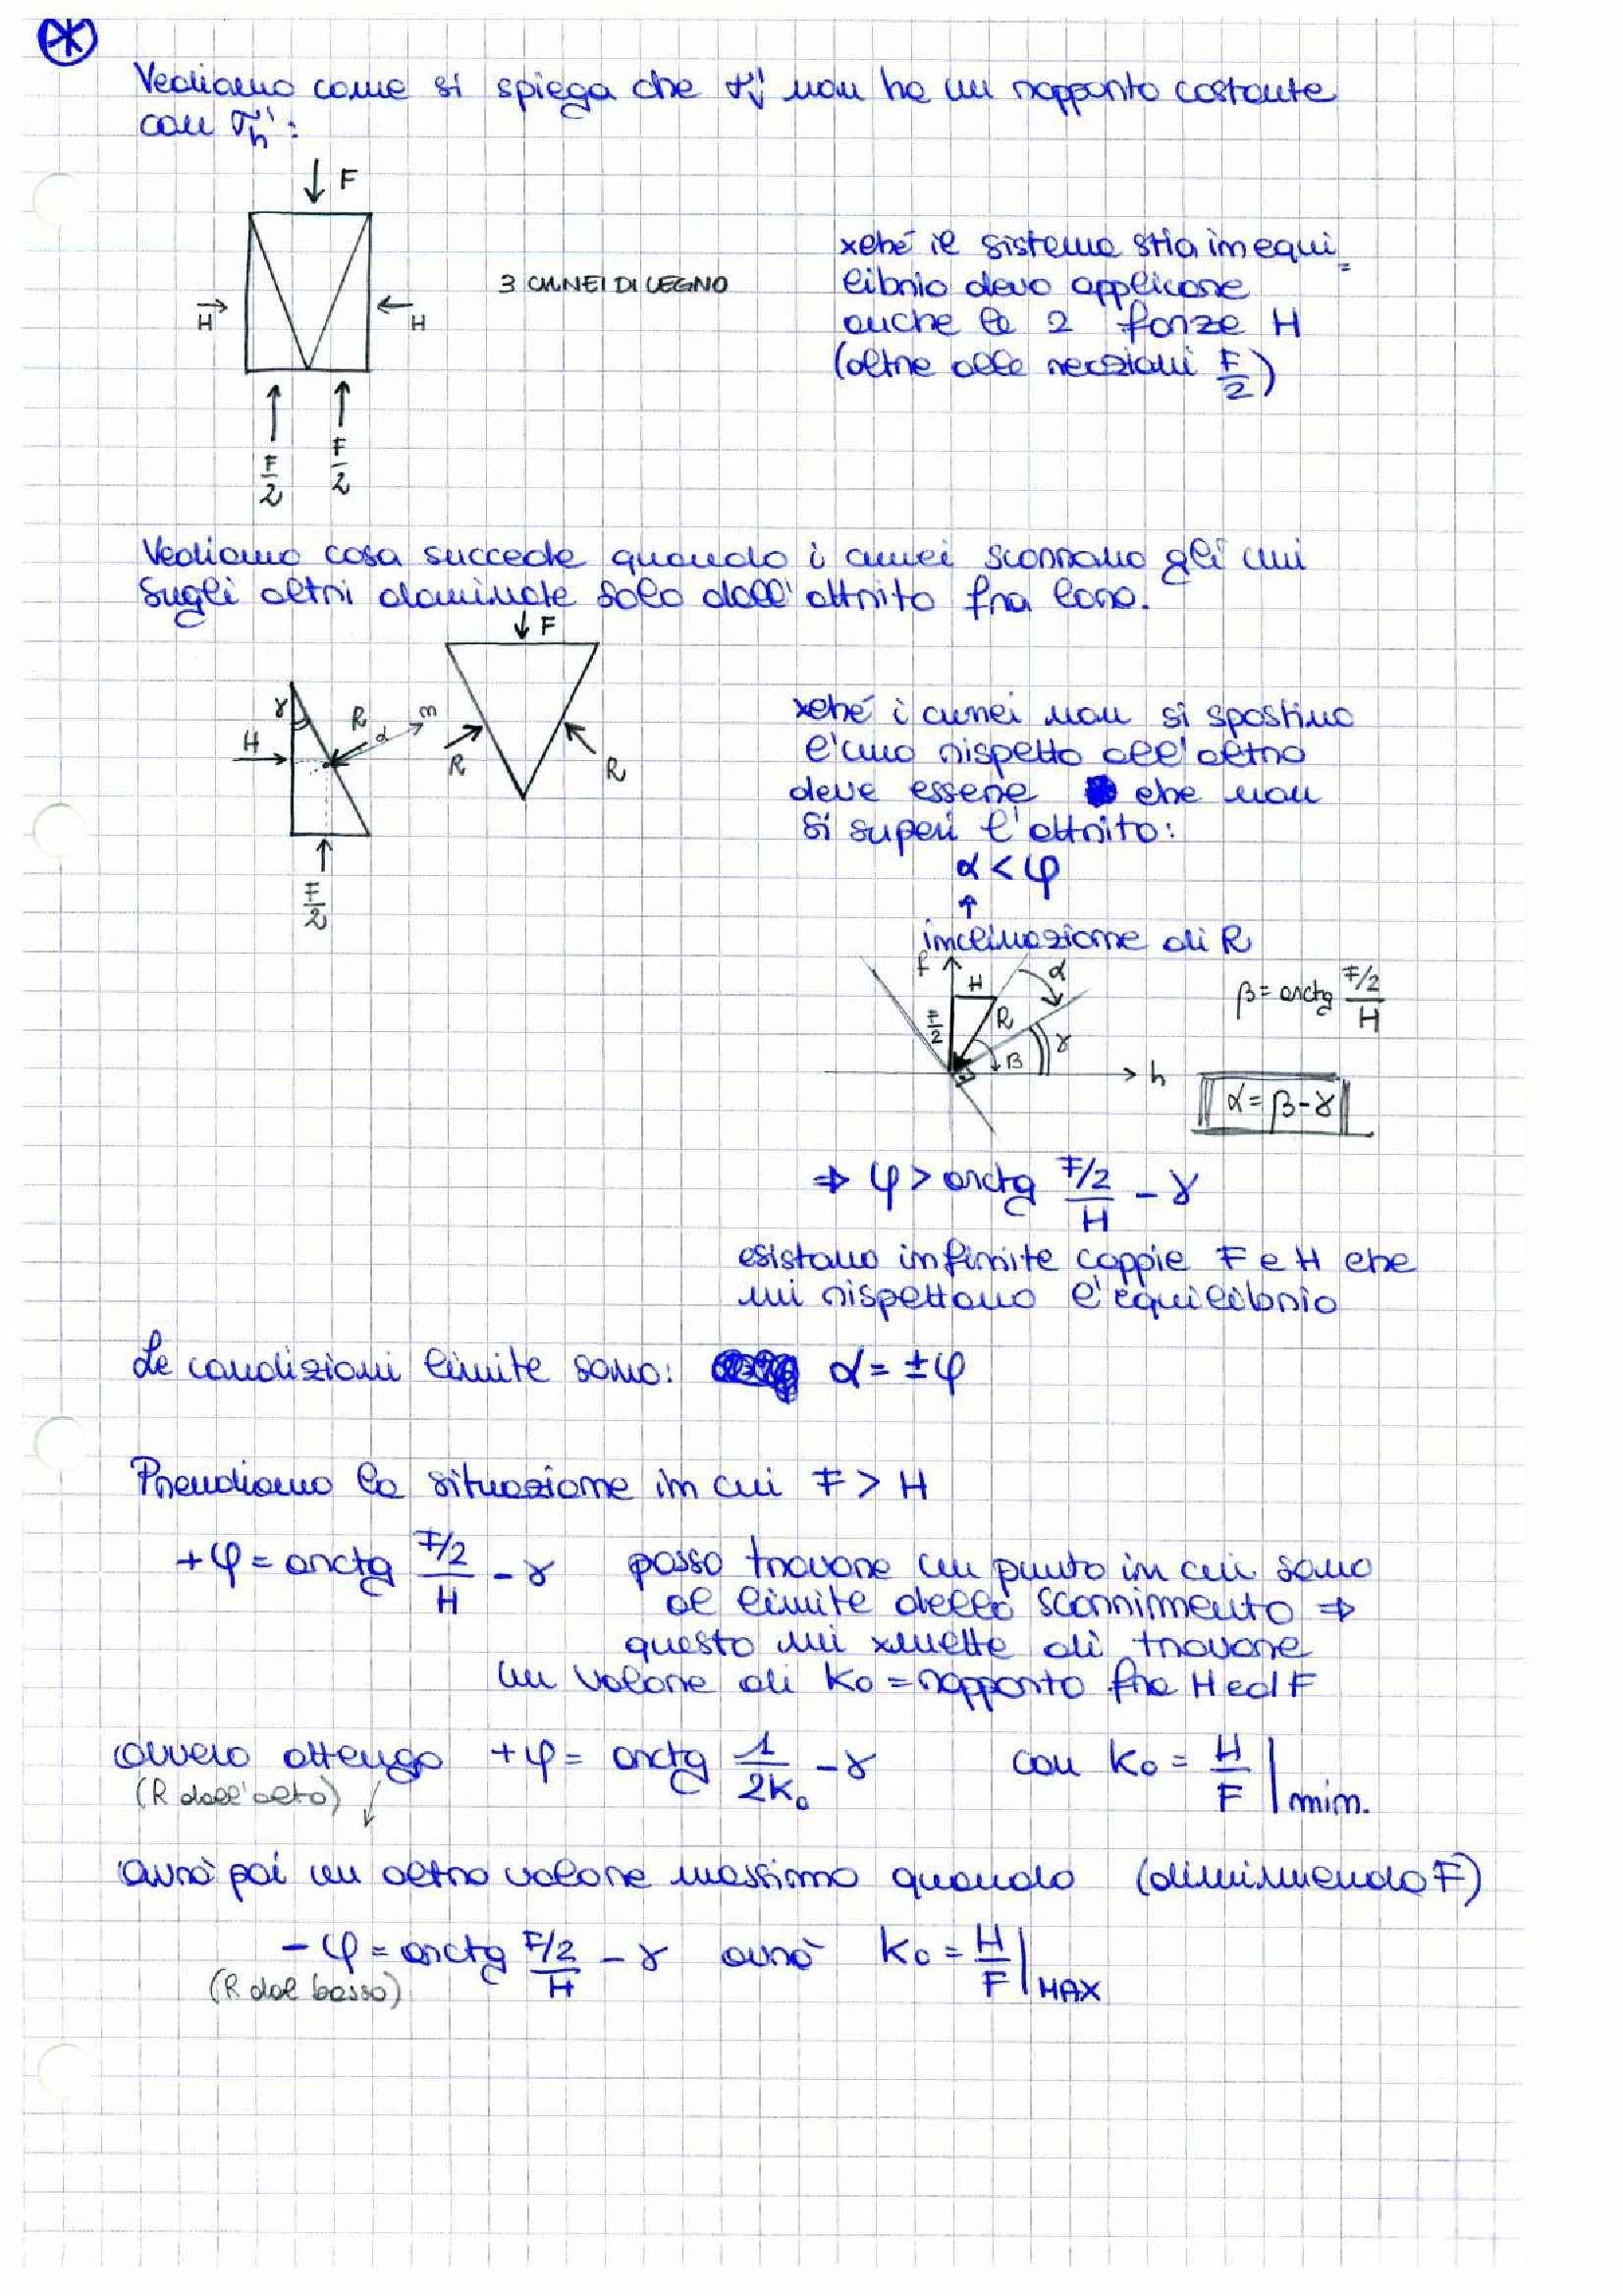 *
Vediamo come si spiega che σv' non ha un rapporto costante
con σh':
↓ F
H →
← H
3 CUNEI DI LEGNO
F/2
F/2
xché il sistema stia in equi=
librio devo applicare
anche le 2 forze H
(oltre alle reazioni F/2)
Vediamo cosa succede quando i cunei scorrano gli uni
sugli altri dominate solo dall'attrito fra loro.
↓ F
γ
R
α
n
H
R
R
F/2
xché i cunei non si spostino
l'uno rispetto all'altro
deve essere che non
si superi l'attrito:
α < φ
↑
inclinazione di R
f
H
α
F/2
R
β
γ
h
β = arctg (F/2)/H
α = β - γ
⇒ φ > arctg (F/2)/H - γ
esistono infinite coppie F e H che
mi rispettano l'equilibrio
Le condizioni limite sono: α = ±φ
Prendiamo la situazione in cui F > H
+φ = arctg (F/2)/H - γ posso trovare un punto in cui sono
al limite dello scorrimento ⇒
questo mi xmette di trovare
un valore di K₀ = rapporto fra H ed F
ovvero ottengo +φ = arctg 1/(2K₀) - γ con K₀ = H/F | min.
(R dall'alto) ↓
avrò poi un altro valore massimo quando (diminuendo F)
-φ = arctg (F/2)/H - γ avrò K₀ = H/F | MAX
(R dal basso)